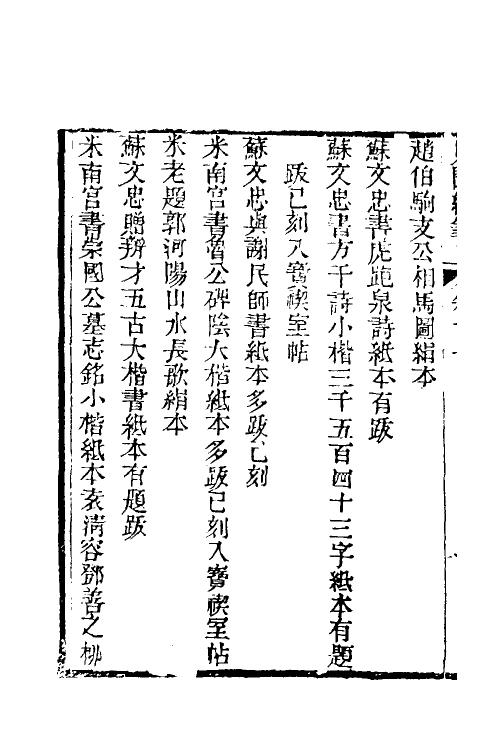 趙伯駒支公相馬圖絹本
蘇文忠書虎跑泉詩紙本有跋
蘇文忠書方干詩小楷三千五百四十三字紙本有題
跋已刻入寳禊室帖
蘇文忠與謝民師書紙本多跋已刻
米南宮書魯公碑陰大楷紙本多跋已刻入寳禊室帖
米老題郭河陽山水長歌絹本
蘇文忠贈辨才五古大楷書紙本有題跋
米南宮書崇國公墓志銘小楷紙本袁淸容鄧善之柳